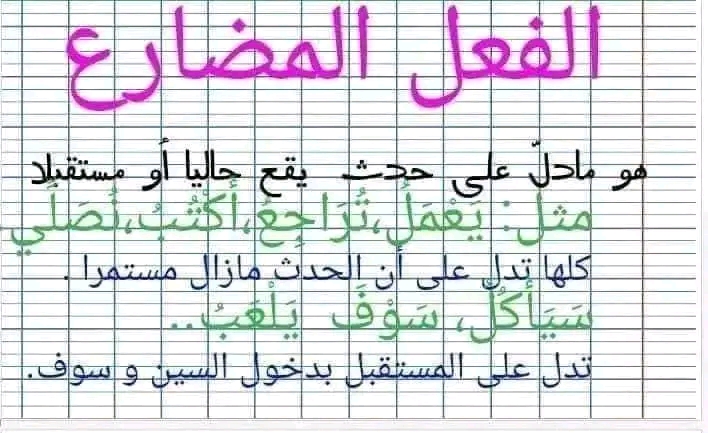 الفعل المضارع
هو مادلّ على حدث يقع حاليا أو مستقبلا
مثل: يَعْمَلُ،تُرَاجِعُ،أَكْتُبُ،نُصَلِّي.
كلها تدل على أن الحدث مازال مستمرا .
سَيَأكُلُ، سَوْفَ يَلْعَبُ..
تدل على المستقبل بدخول السين و سوف.